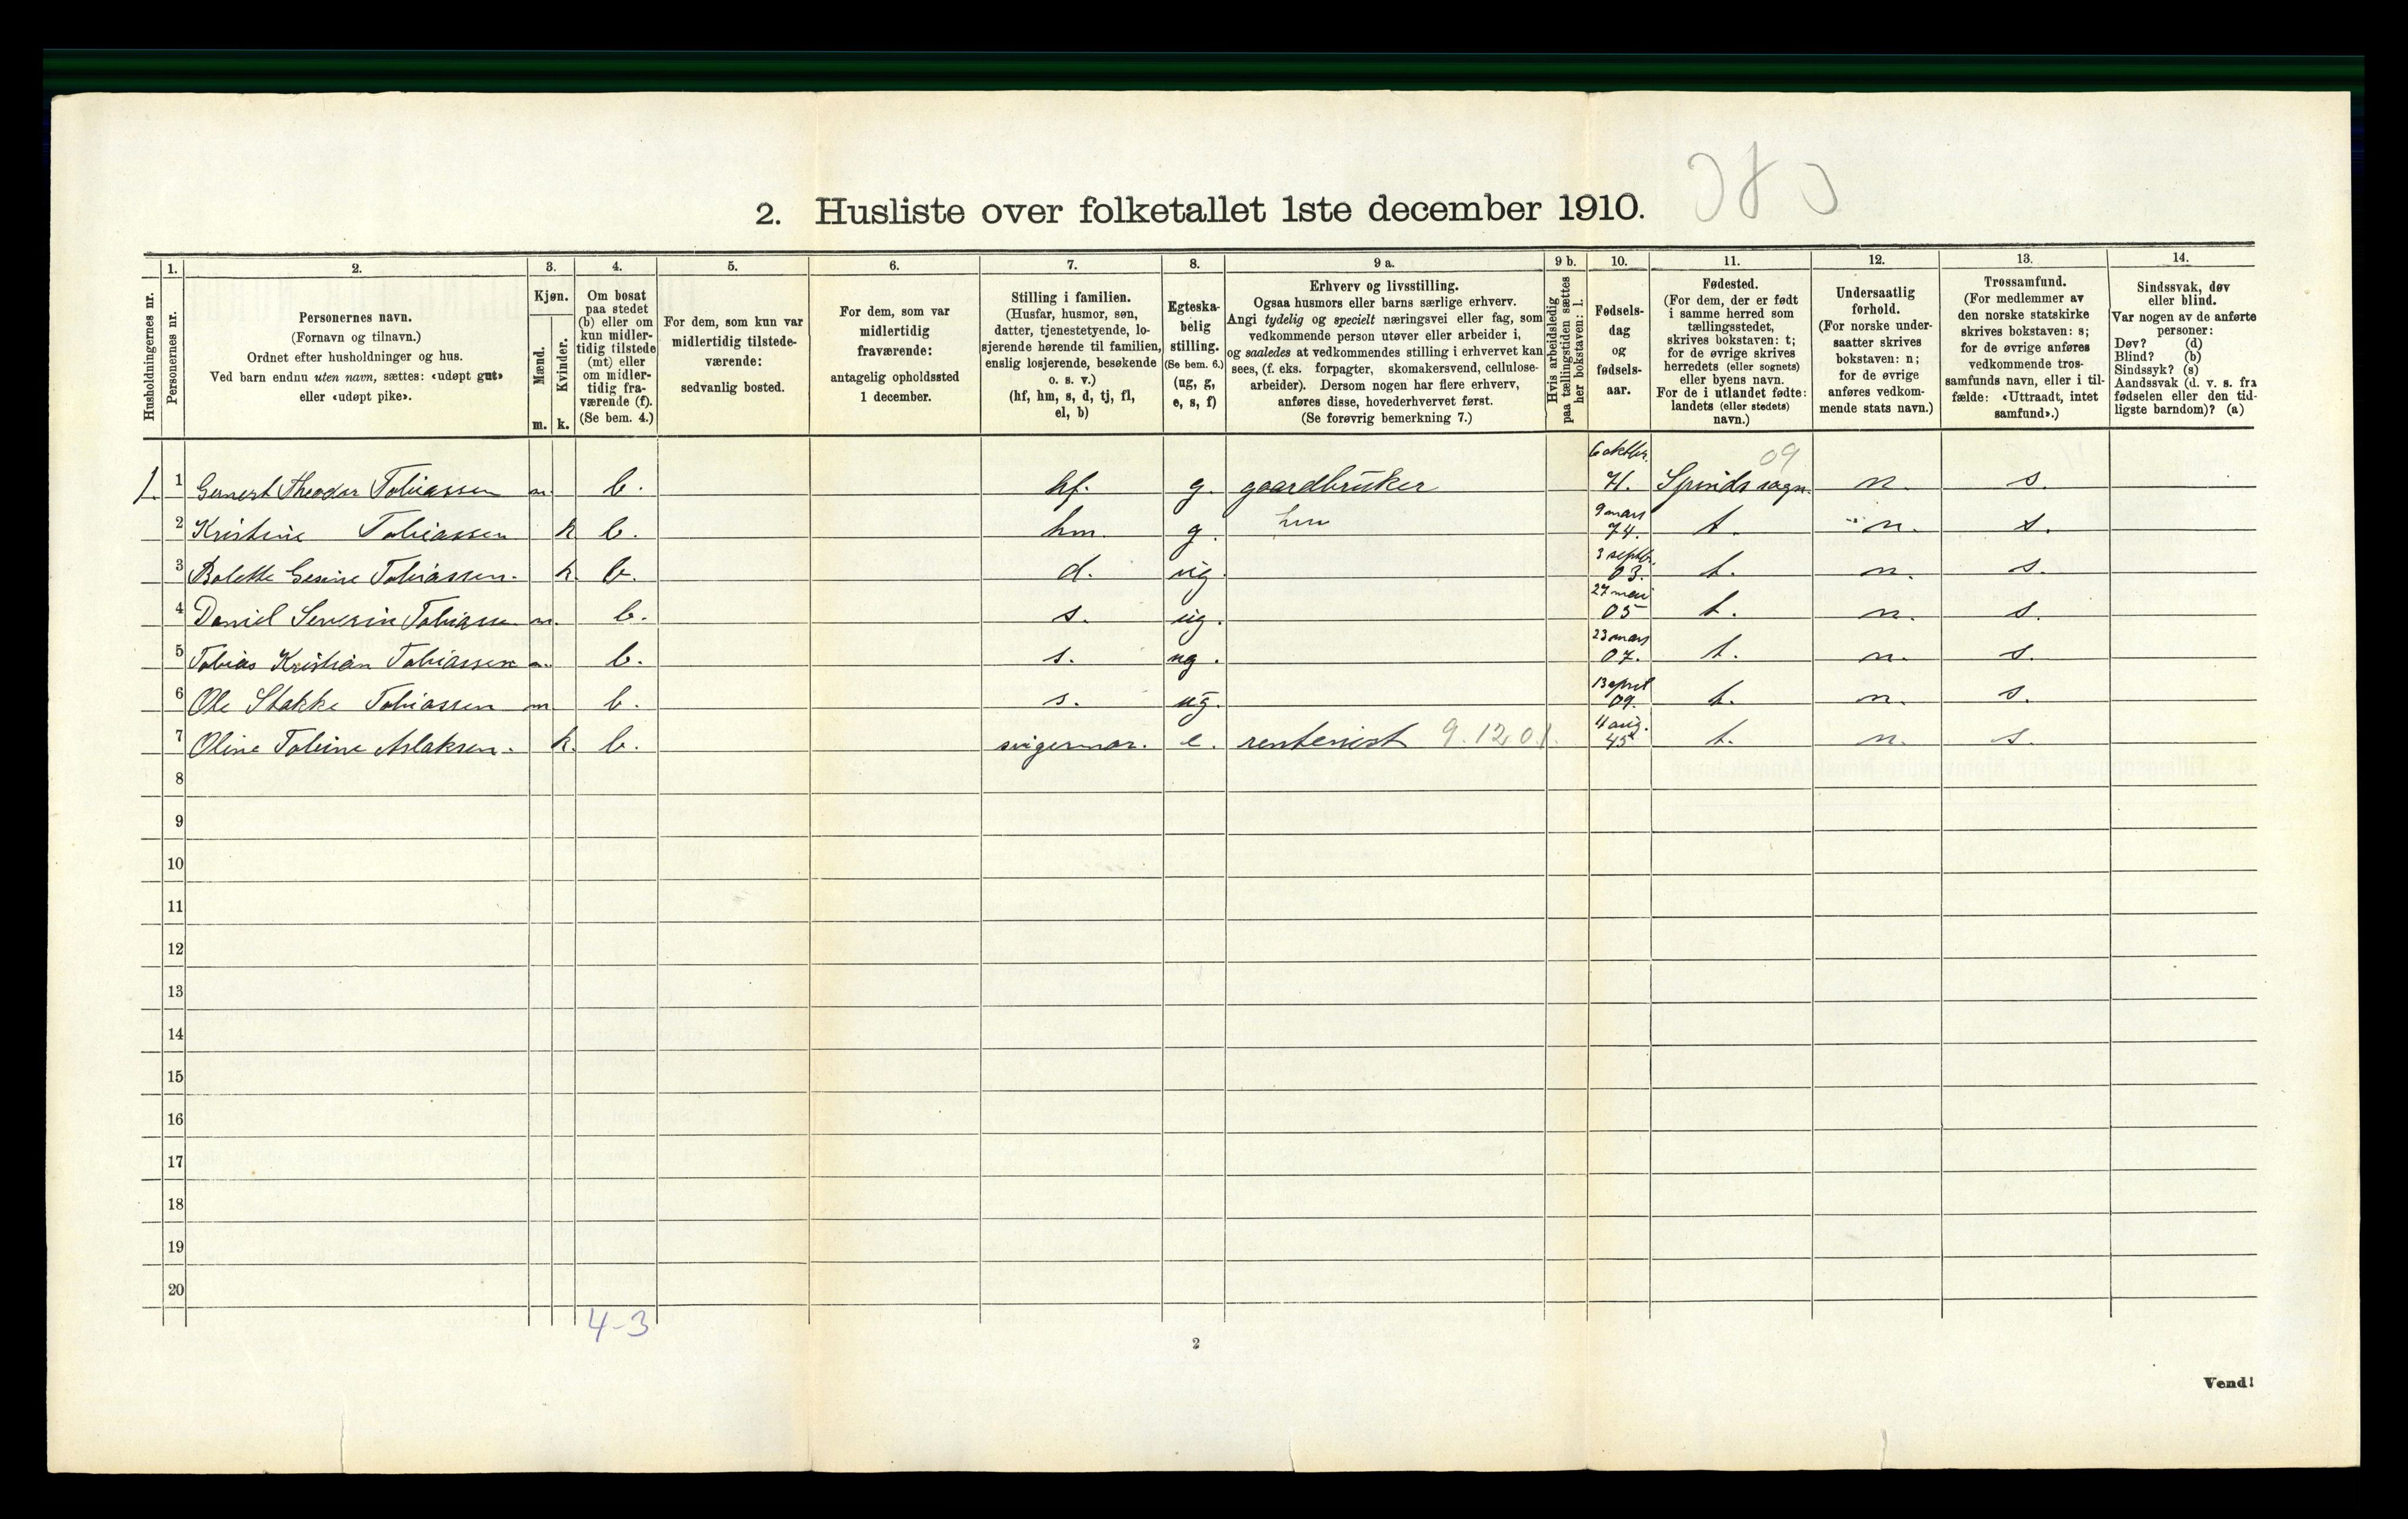 2. Husliste over folketallet 1ste december 1910.
Husholdningernes nr.
1. Personernes nr.
2. Personernes navn.
(Fornavn og tilnavn.)
Ordnet efter husholdninger og hus.
Ved barn endnu uten navn, sættes: «udøpt gut»
eller «udøpt pike».
3. Kjøn.
Mænd. Kvinder.
m. k.
4. Om bosat
paa stedet
(b) eller om
kun midler-
tidig tilstede
(mt) eller
om midler-
tidig fra-
værende (f).
(Se bem. 4.)
5. For dem, som kun var
midlertidig tilstede-
værende:
sedvanlig bosted.
6. For dem, som var
midlertidig
fraværende:
antagelig opholdssted
1 december.
7. Stilling i familien.
(Husfar, husmor, søn,
datter, tjenestetyende, lo-
sjerende hørende til familien,
enslig losjerende, besøkende
o. s. v.)
(hf, hm, s, d, tj, fl,
el, b)
8. Egteska-
belig
stilling.
(Se bem. 6.)
(ug, g,
e, s, f)
9 a. Erhverv og livsstilling.
Ogsaa husmors eller barns særlige erhverv.
Angi tydelig og specielt næringsvei eller fag, som
vedkommende person utøver eller arbeider i,
og saaledes at vedkommendes stilling i erhvervet kan
sees, (f. eks. forpagter, skomakersvend, cellulose-
arbeider). Dersom nogen har flere erhverv,
anføres disse, hovederhvervet først.
(Se forøvrig bemerkning 7.)
9 b. Hvis arbeidsledig
paa tællingstiden sættes
her bokstaven: l.
10. Fødsels-
dag
og
fødsels-
aar.
11. Fødested.
(For dem, der er født
i samme herred som
tællingsstedet,
skrives bokstaven: t;
for de øvrige skrives
herredets (eller sognets)
eller byens navn.
For de i utlandet fødte:
landets (eller stedets)
navn.)
12. Undersaatlig
forhold.
(For norske under-
saatter skrives
bokstaven: n;
for de øvrige
anføres vedkom-
mende stats navn.)
13. Trossamfund.
(For medlemmer av
den norske statskirke
skrives bokstaven: s;
for de øvrige anføres
vedkommende tros-
samfunds navn, eller i til-
fælde: «Uttraadt, intet
samfund».)
14. Sindssvak, døv
eller blind.
Var nogen av de anførte
personer:
Døv? (d)
Blind? (b)
Sindssyk? (s)
Aandssvak (d. v. s. fra
fødselen eller den tid-
ligste barndom)? (a)
09
1. 1 Gunert Theodor Tobiassen m. b. hf. g. gaardbruker 6 oktbr. 71. Spinds sogn. n. s.
2 Kristine Tobiassen k b. hm. g. hm 9 mars 74. t. n. s.
3 Bolette Gesine Tobiassen. k. b. d. ug. 3 septbr. 03. t. n. s.
4 Daniel Severin Tobiassen m. b. s. ug. 27 mai 05 t. n. s.
5 Tobias Kristian Tobiassen m. b. s. ug. 23 mars 07. t. n. s.
6 Ole Stakke Tobiassen m b. s. ug. 13 april 09. t. n. s.
7 Oline Tobine Aslaksen. k. b. svigermor. e. rentenist 9.12.01. 4 aug. 45 t. n. s.
8
9
10
11
12
13
14
15
16
17
18
19
20
4-3
2
Vend!